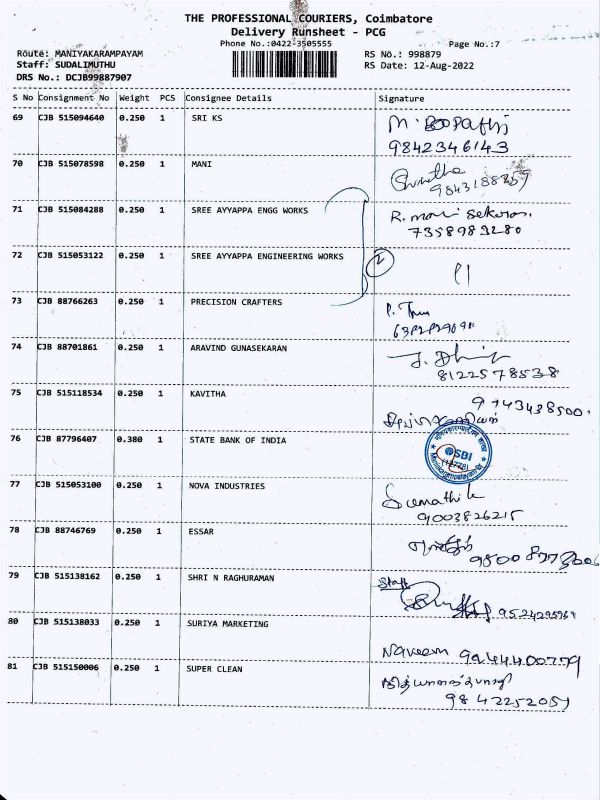 THE PROFESSIONAL COURIERS, Coimbatore
Delivery Runsheet - PCG
Phone No.:0422-3505555
Page No.:7
Route: MANIYAKARAMPAYAM
RS No.: 998879
Staff: SUDALIMUTHU
RS Date: 12-Aug-2022
DRS No.: DCJB99887907
S No Consignment No Weight PCS Consignee Details Signature
69 CJB 515094640 0.250 1 SRI KS
9842346143
70 CJB 515078598 0.250 1 MANI
71 CJB 515084288 0.250 1 SREE AYYAPPA ENGG WORKS R. mani Sekaran.
7358983280
72 CJB 515053122 0.250 1 SREE AYYAPPA ENGINEERING WORKS 2
73 CJB 88766263 0.250 1 PRECISION CRAFTERS
74 CJB 88701861 0.250 1 ARAVIND GUNASEKARAN
8122578538
75 CJB 515118534 0.250 1 KAVITHA 9743438500.
76 CJB 87796407 0.380 1 STATE BANK OF INDIA
SBI
77 CJB 515053100 0.250 1 NOVA INDUSTRIES
Sumathi k
9003826215
78 CJB 88746769 0.250 1 ESSAR
79 CJB 515138162 0.250 1 SHRI N RAGHURAMAN Staff
80 CJB 515138033 0.250 1 SURIYA MARKETING
Naveem 9244400779
81 CJB 515150006 0.250 1 SUPER CLEAN
9842252051